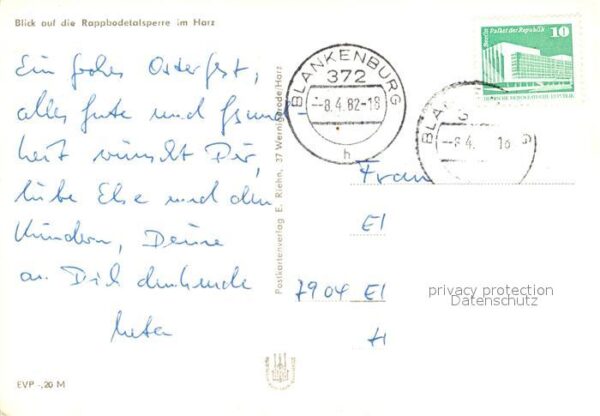 Blick auf die Rappbodetalsperre im Harz
Ein frohes Osterfest,
alles Gute und Gesund-
heit wünscht Dir,
liebe Else und den
Kindern, Deine
an Dich denkende
Meta
EVP -,20 M
Postkartenverlag E. Riehn, 37 Wernigerode/Harz
BLANKENBURG
372
-8.4.82-18
h
Berlin Palast der Republik
10
DEUTSCHE DEMOKRATISCHE REPUBLIK
BLAN G
-8.4. 18
Frau
El
7904 El
H
privacy protection
Datenschutz